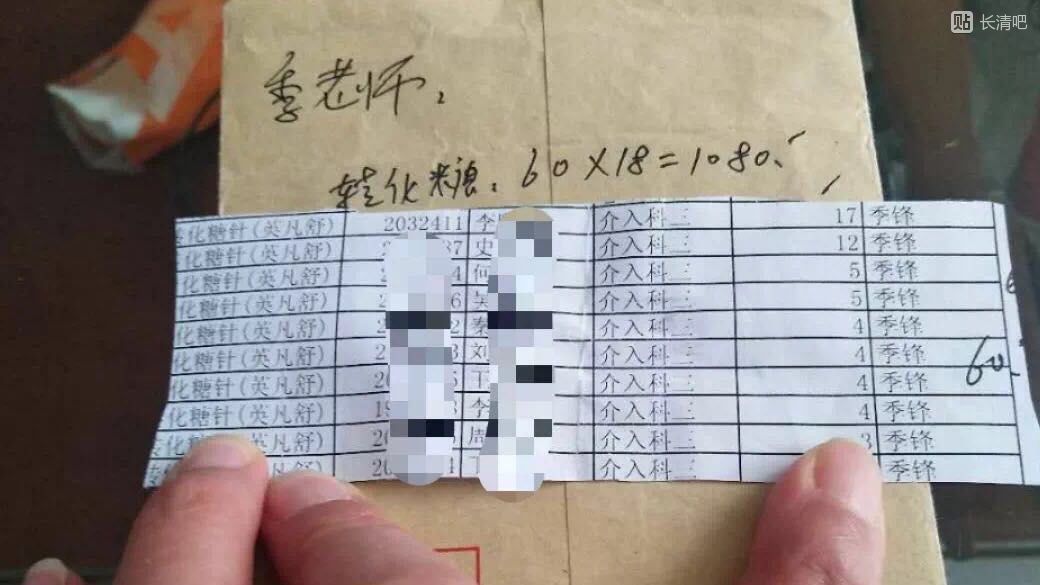 贴 长清吧
季老师，
转化糖：60×18=1080.
化糖针(英凡舒) 2032411 李 介入科三 17 季锋
化糖针(英凡舒) 37 史 介入科三 12 季锋
化糖针(英凡舒) 4 何 介入科三 5 季锋
化糖针(英凡舒) 6 吴 介入科三 5 季锋
化糖针(英凡舒) 2 秦 介入科三 4 季锋
化糖针(英凡舒) 3 刘 介入科三 4 季锋
化糖针(英凡舒) 20 5 王 介入科三 4 季锋 60.
化糖针(英凡舒) 19 3 李 介入科三 4 季锋
化糖针(英凡舒) 20 周 介入科三 3 季锋
凡舒) 20 4 介入科三 季锋